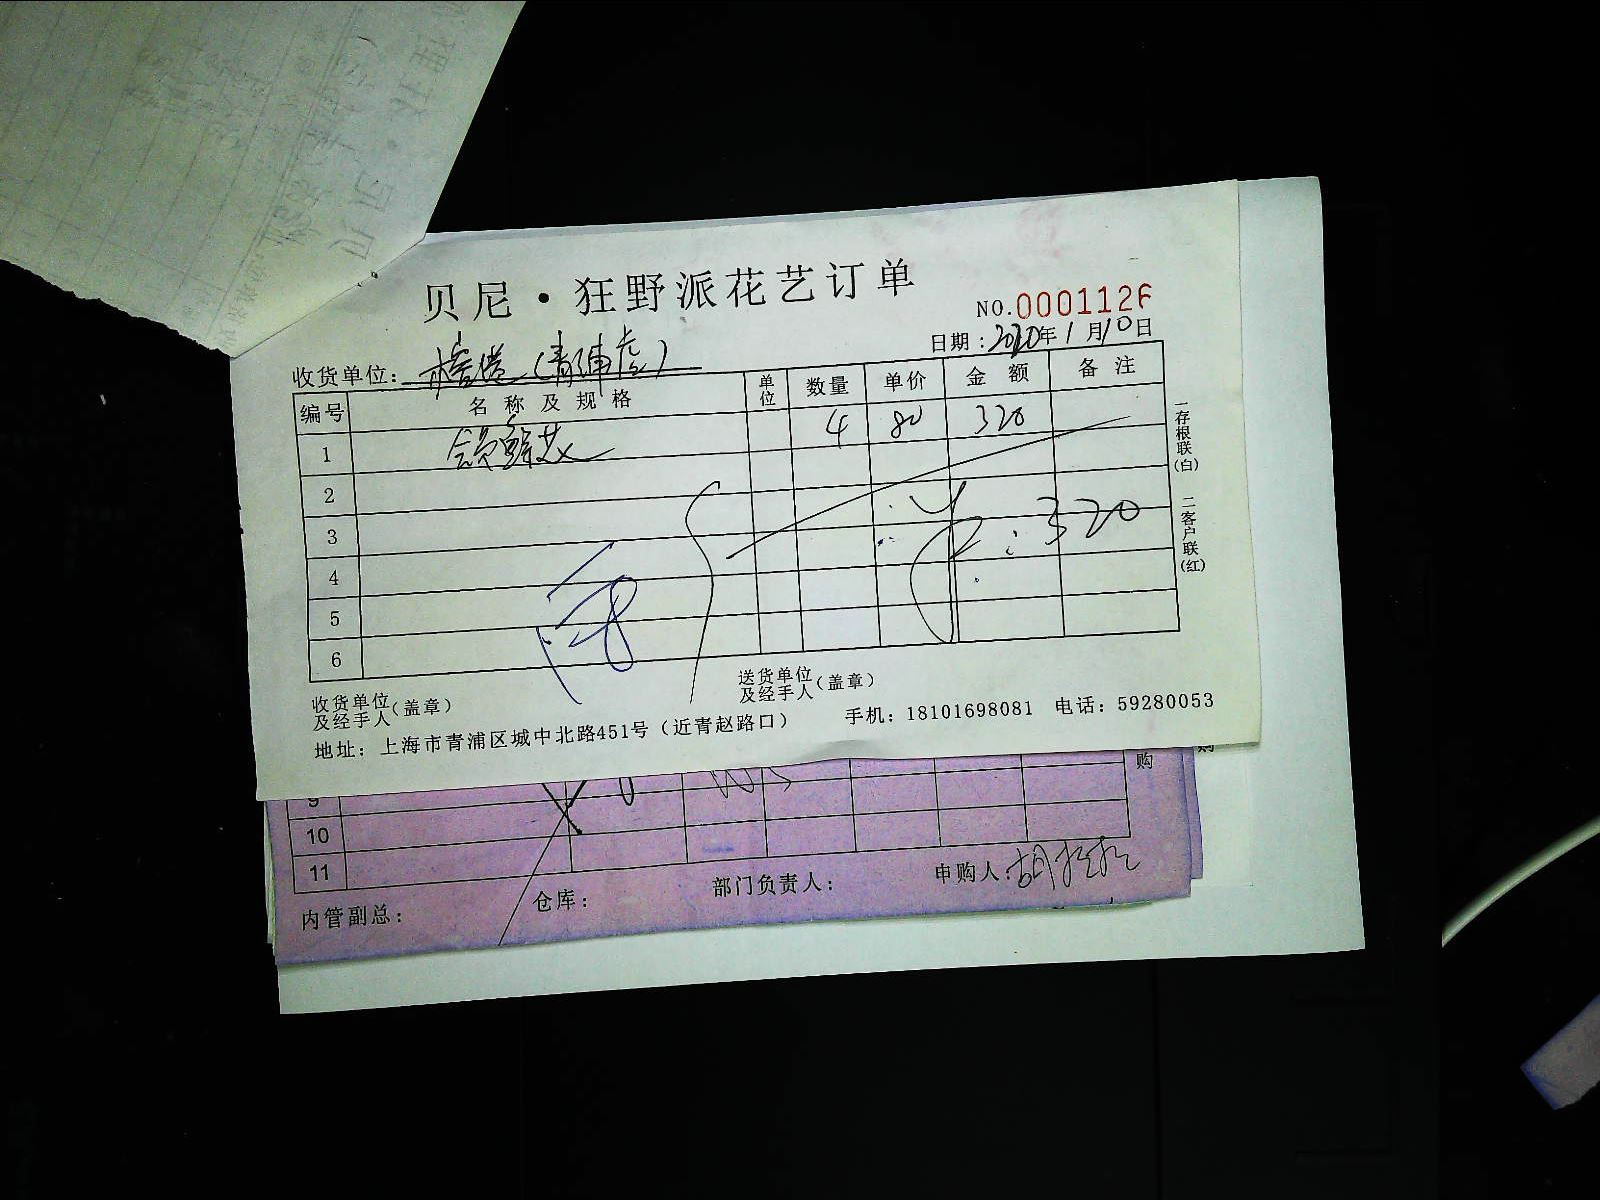 贝尼·狂野派花艺订单
NO.0001126
日期:2020年1月10日
收货单位: (青浦店)
编号 名称及规格 单位 数量 单价 金额 备注
1 4 80 320
2
3
4
5
6
¥:320
一存根联(白) 二客户联(红)
收货单位及经手人(盖章)
送货单位及经手人(盖章)
地址:上海市青浦区城中北路451号(近青赵路口) 手机:18101698081 电话:59280053
购
购
9
10
11
内管副总: 仓库: 部门负责人: 申购人: